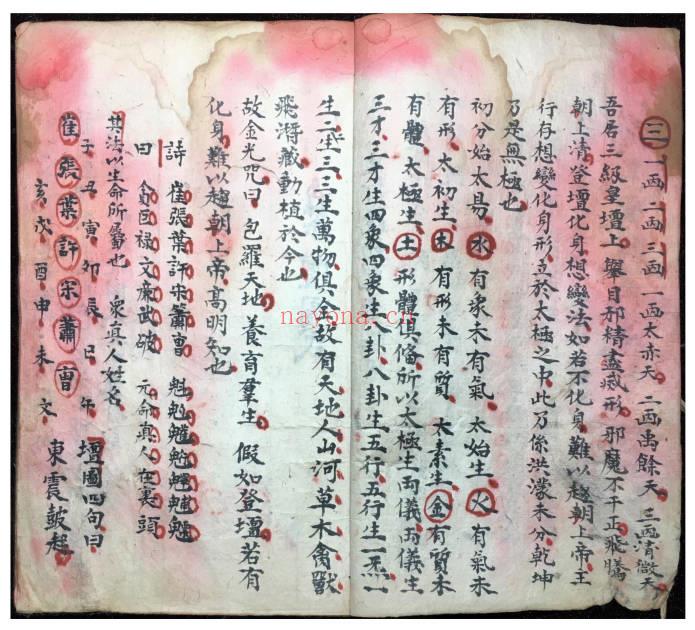 三 一画二画三画 一画太赤天 二画禹餘天 三画清微天
吾居三級皇壇上 舉目邪精盡滅形 邪魔不干正飛騰
朝上清登壇化身想變法如若不化身難以趨朝上帝王
行存想變化身形立於太極之中此乃係洪濛未分乾坤
乃是無極也
初分始太易水有象未有氣 太始生火有氣未
有形 太初生木有形未有質 太素生金有質未
有體 太極生土形體具俻所以太極生両儀両儀生
三才三才生四象四象生八卦八卦生五行五行生一炁一
生二二生三三生萬物俱全故有天地人山河草木禽獸
飛潛藏動植於今也
故金光咒曰 包羅天地 養育羣生 假如登壇若有
化身難以趨朝上帝高明知也
詩 崔張葉許宋蕭曹 魁
曰 貪巨祿文廉武破 元命真人在裏頭
其法以生命所屬也 衆真人姓名
子丑寅卯辰巳午 壇圖四句曰
崔張葉許宋蕭曹
亥戌酉申未 文 東震皷起
nayona.cn